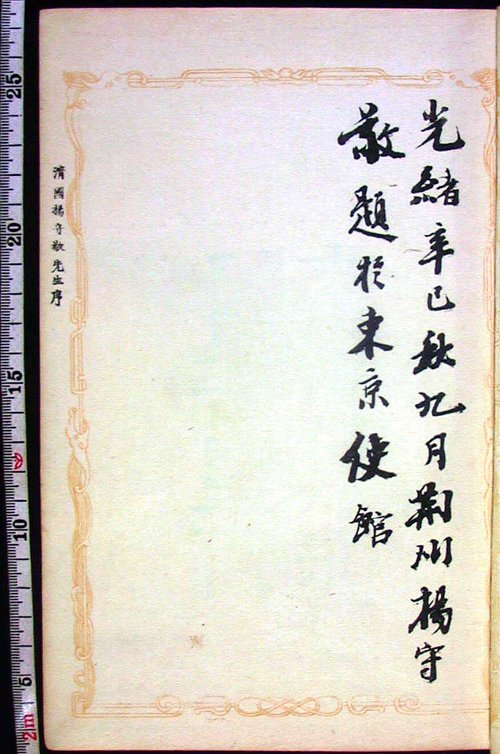 光緒辛巳秋九月荊州楊守
敬題於東京使館
清國楊守敬先生序
25
20
15
10
5
2m